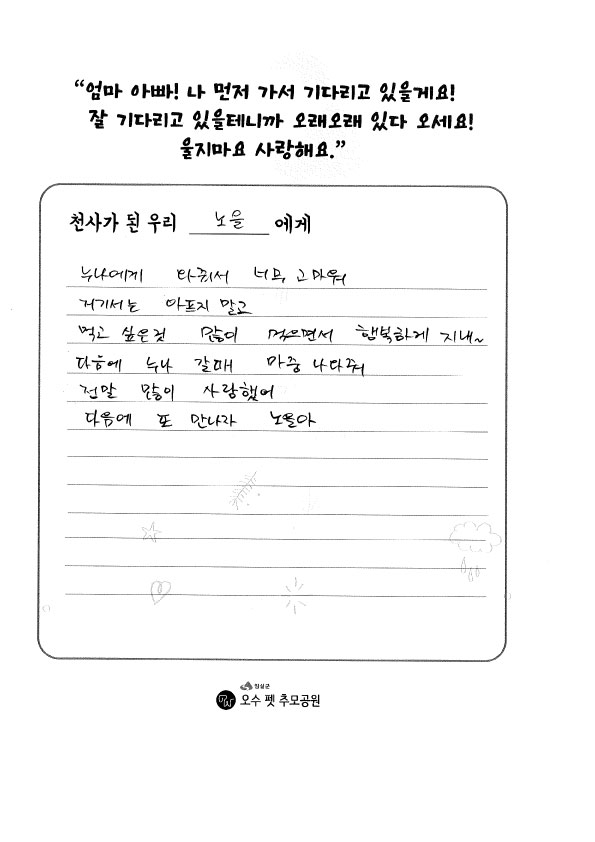 “엄마 아빠! 나 먼저 가서 기다리고 있을게요!
잘 기다리고 있을테니까 오래오래 있다 오세요!
울지마요 사랑해요.”
천사가 된 우리 노을 에게
누나에게 와줘서 너무 고마워
거기서는 아프지 말고
먹고 싶은것 많이 먹으면서 행복하게 지내~
다음에 누나 갈때 마중 나와줘
정말 많이 사랑했어
다음에 또 만나자 노을아
임실군
오수 펫 추모공원